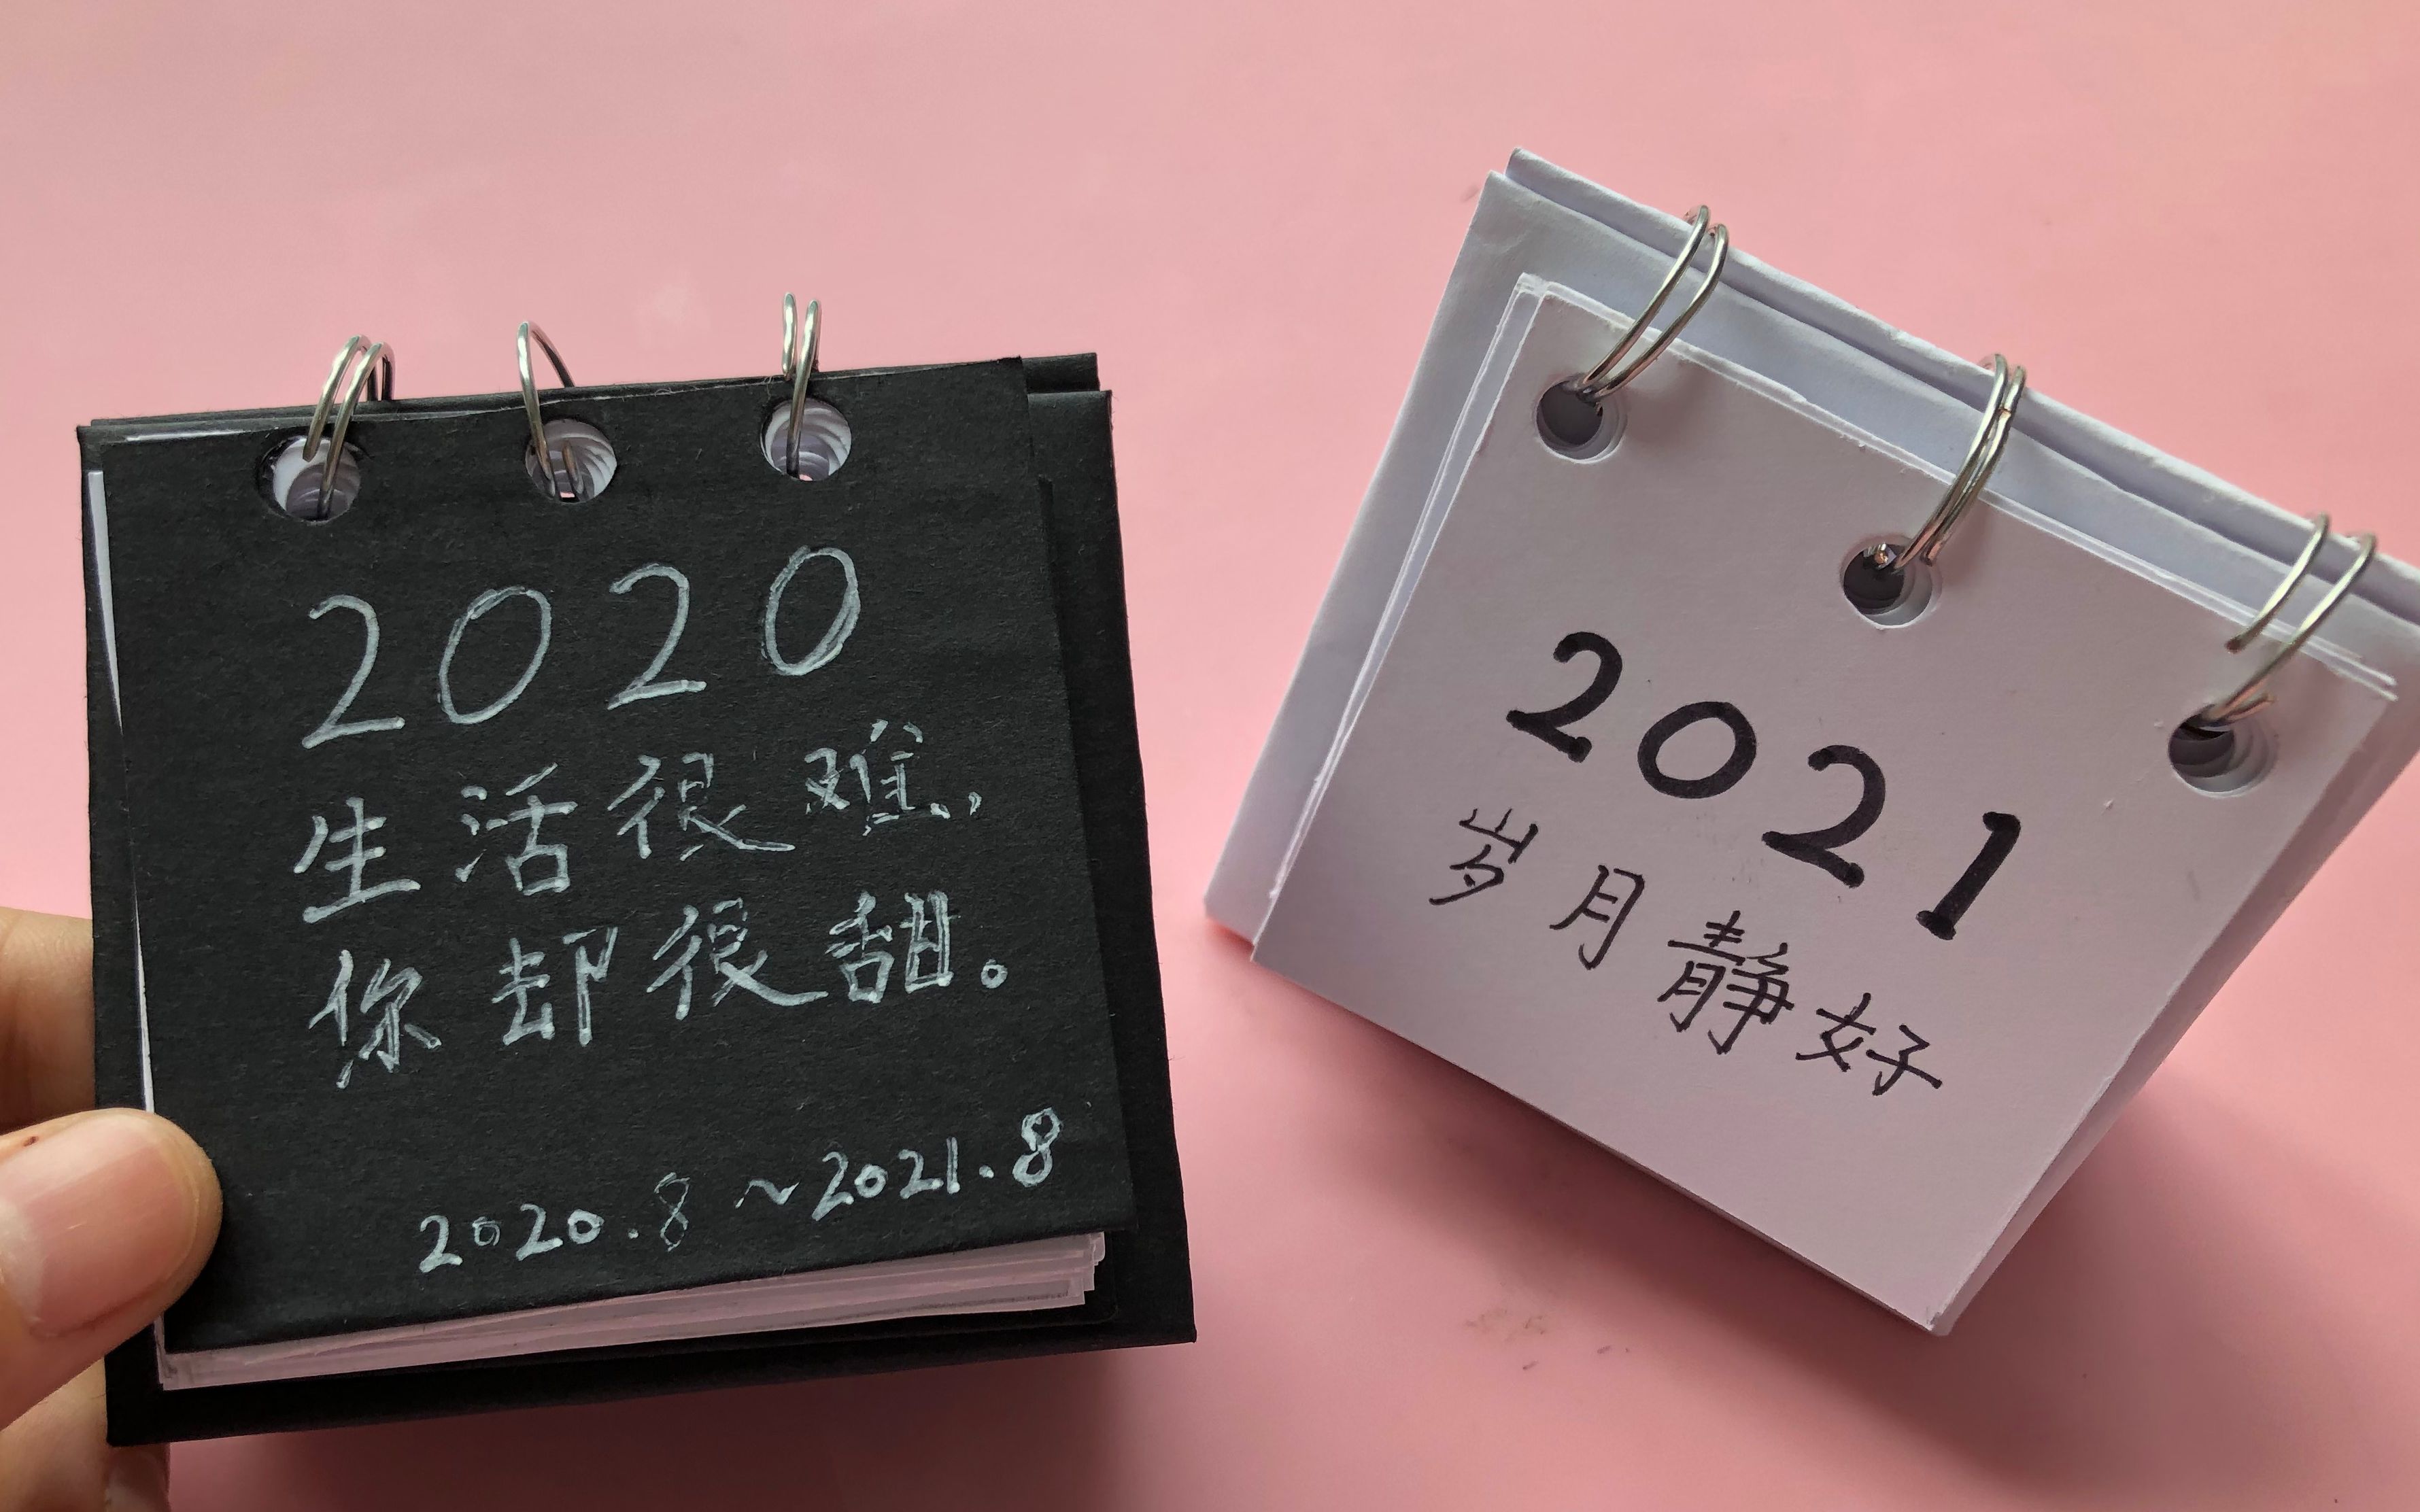 2020
生活很难,
你却很甜。
2020.8~2021.8
2021
岁月静好